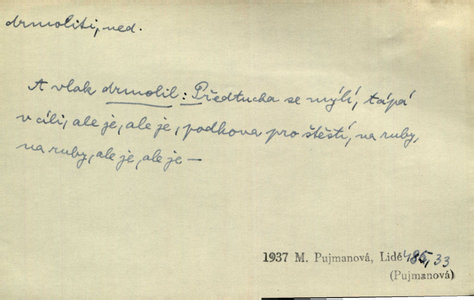 drmoliti, ned.
A vlak drmolil: Předtucha se mýlí, tápá
v cíli, ale je, ale je, podkova pro štěstí, na ruby,
na ruby, ale je, ale je —
1937 M. Pujmanová, Lidé 486, 33
(Pujmanová)